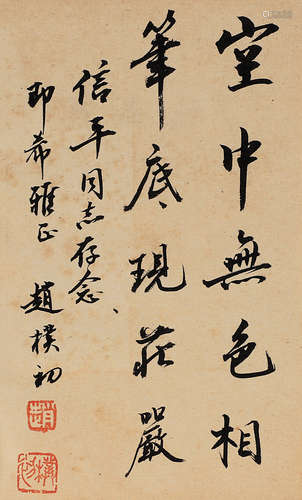 空中無色相
筆底現莊嚴
信平同志存念、
即希雅正 趙樸初
趙
樸初